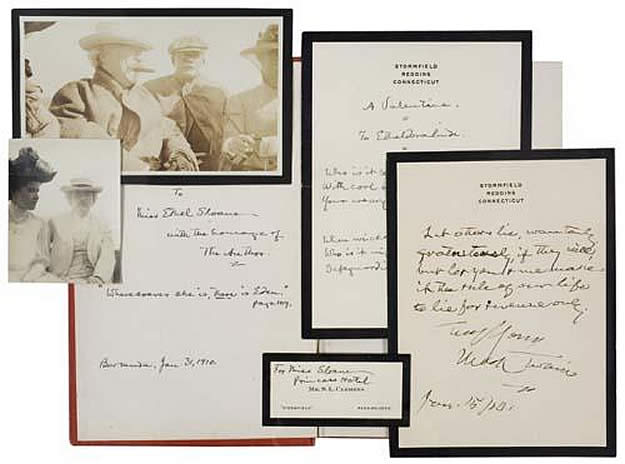 To
Miss Ethel Sloane
with the homage of
The Author.
"Wheresoever she is, there is Eden."
page 109.
Bermuda, Jan 31, 1910.
STORMFIELD
REDDING
CONNECTICUT
A Valentine.
To Ethel
Who is it
With cool
Your weary
When wicked
Who is it
Safeguard
STORMFIELD
REDDING
CONNECTICUT
Let others lie wantonly
gratuitously, if they will,
but let you & me make
it the rule of our life
to lie for revenue only.
Truly Yours
Mark Twain
Jan. 15/10.
For Miss Sloane
Princess Hotel
MR. S. L. CLEMENS
"STORMFIELD"